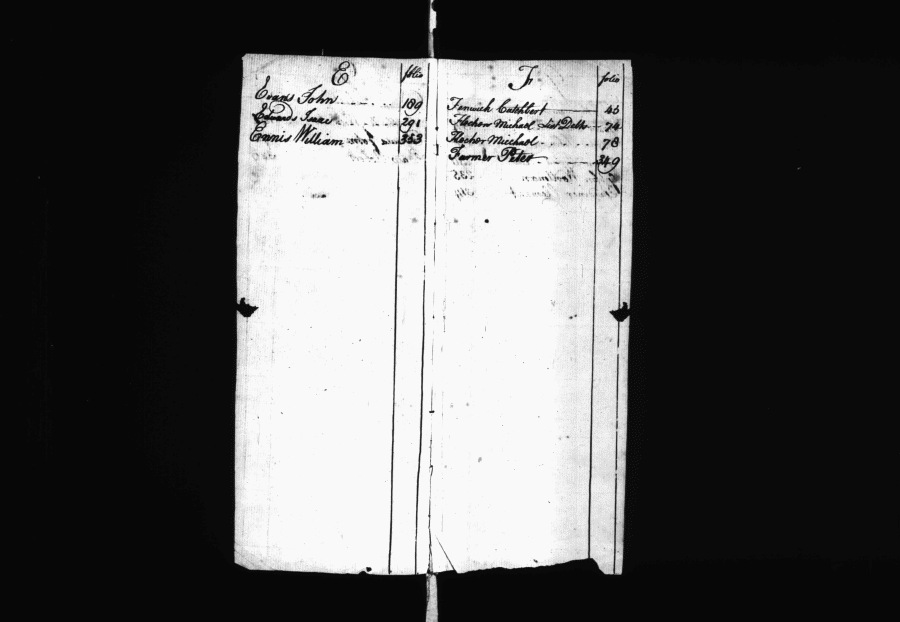 E folio
Evans John 189
Edwards Isaac 291
Ennis William 353
F folio
Fenwick Cuthbert 45
Flecher Michael 74
Flecher Micchael 78
Farmer Peter 349